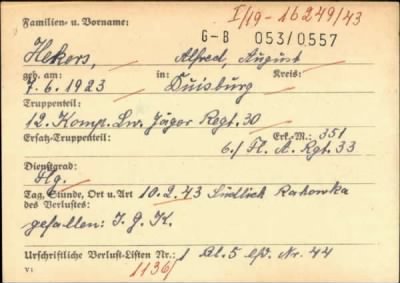 Familien- u. Vorname:
I/19-16249/43
G-B 053/0557
Hekers, Alfred, August
geb. am: in: Kreis:
7.6.1923 Duisburg
Truppenteil:
12. Komp. Lw. Jäger Regt. 30
Ersatz-Truppenteil: Erk.-M.: 351
6./ Fl. A. Rgt. 33
Dienstgrad:
Flg.
Tag, Stunde, Ort u. Art 10.2.43 Südlich Rakowka
des Verlustes:
gefallen: I. G. K.
Urschriftliche Verlust-Listen Nr.: 1 Bl. 5 lfd. Nr. 44
V1 1136/